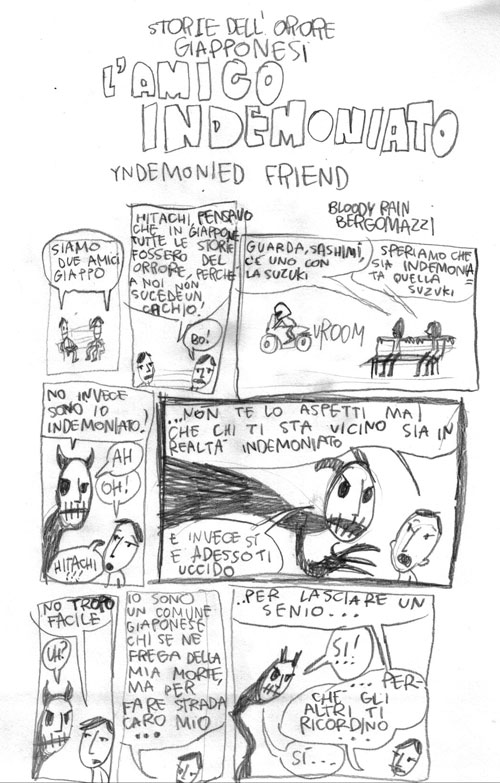 STORIE DELL' ORORE
GIAPPONESI
L'AMICO
INDEMONIATO
YNDEMONIED FRIEND
BLOODY RAIN
BERGOMAZZI
SIAMO
DUE AMICI
GIAPPO
HITACHI, PENSAVO
CHE IN GIAPPONE
TUTTE LE STORIE
FOSSERO DEL
ORRORE, PERCHÈ
A NOI NON
SUCEDE UN
CACHIO!
BO!
GUARDA, SASHIMI,
C'E UNO CON
LA SUZUKI
SPERIAMO CHE
SIA INDEMONIA=
TA QUELLA
SUZUKI
VROOM
NO INVECE
SONO IO
INDEMONIATO!
AH
OH!
HITACHI
!!!
...NON TE LO ASPETTI MAI
CHE CHI TI STA VICINO SIA IN
REALTA' INDEMONIATO
E INVECE SI
E ADESSO TI
UCCIDO
NO TROPO
FACILE
UH?
IO SONO
UN COMUNE
GIAPONESE
CHI SE NE
FREGA DELLA
MIA MORTE,
MA PER
FARE STRADA
CARO MIO
...
..PER LASCIARE UN
SENIO...
SI!!
...PER-
CHE' GLI
ALTRI TI
RICORDINO
...
SI...